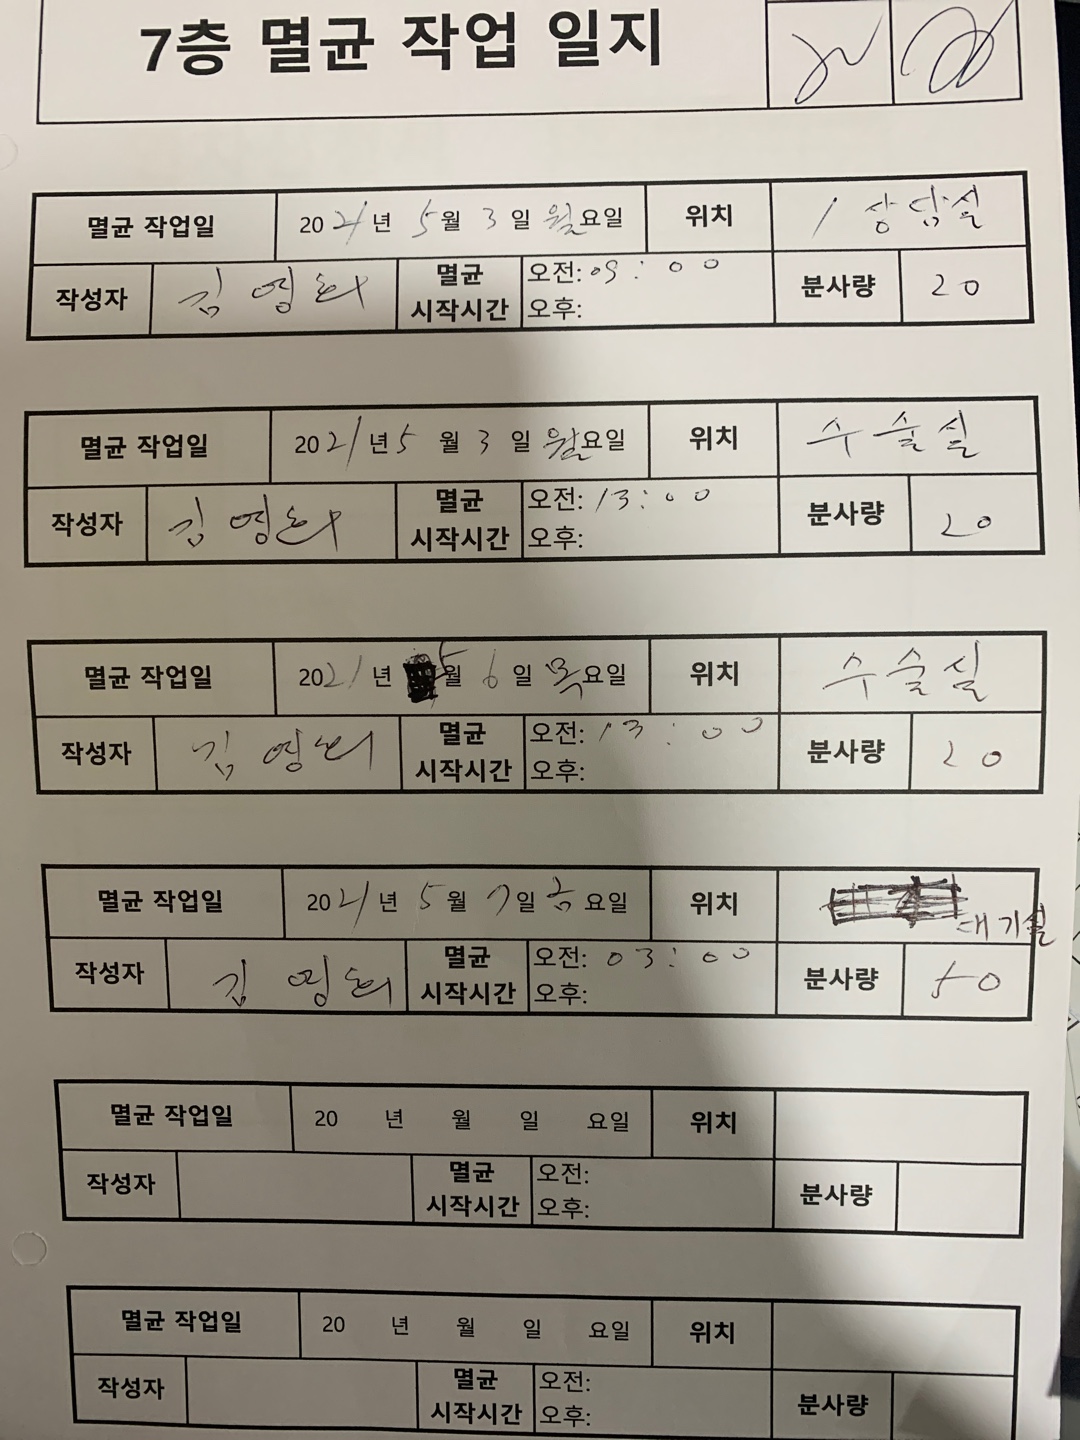 7층 멸균 작업 일지
멸균 작업일 2021년 5월 3일 월요일 위치 1 상담실
작성자 김영희 멸균 시작시간 오전: 09:00 오후: 분사량 20
멸균 작업일 2021년 5월 3일 월요일 위치 수술실
작성자 김영희 멸균 시작시간 오전: 13:00 오후: 분사량 20
멸균 작업일 2021년 5월 6일 목요일 위치 수술실
작성자 김영희 멸균 시작시간 오전: 13:00 오후: 분사량 20
멸균 작업일 2021년 5월 7일 금요일 위치 대기실
작성자 김영희 멸균 시작시간 오전: 03:00 오후: 분사량 50
멸균 작업일 20 년 월 일 요일 위치
작성자 멸균 시작시간 오전: 오후: 분사량
멸균 작업일 20 년 월 일 요일 위치
작성자 멸균 시작시간 오전: 오후: 분사량